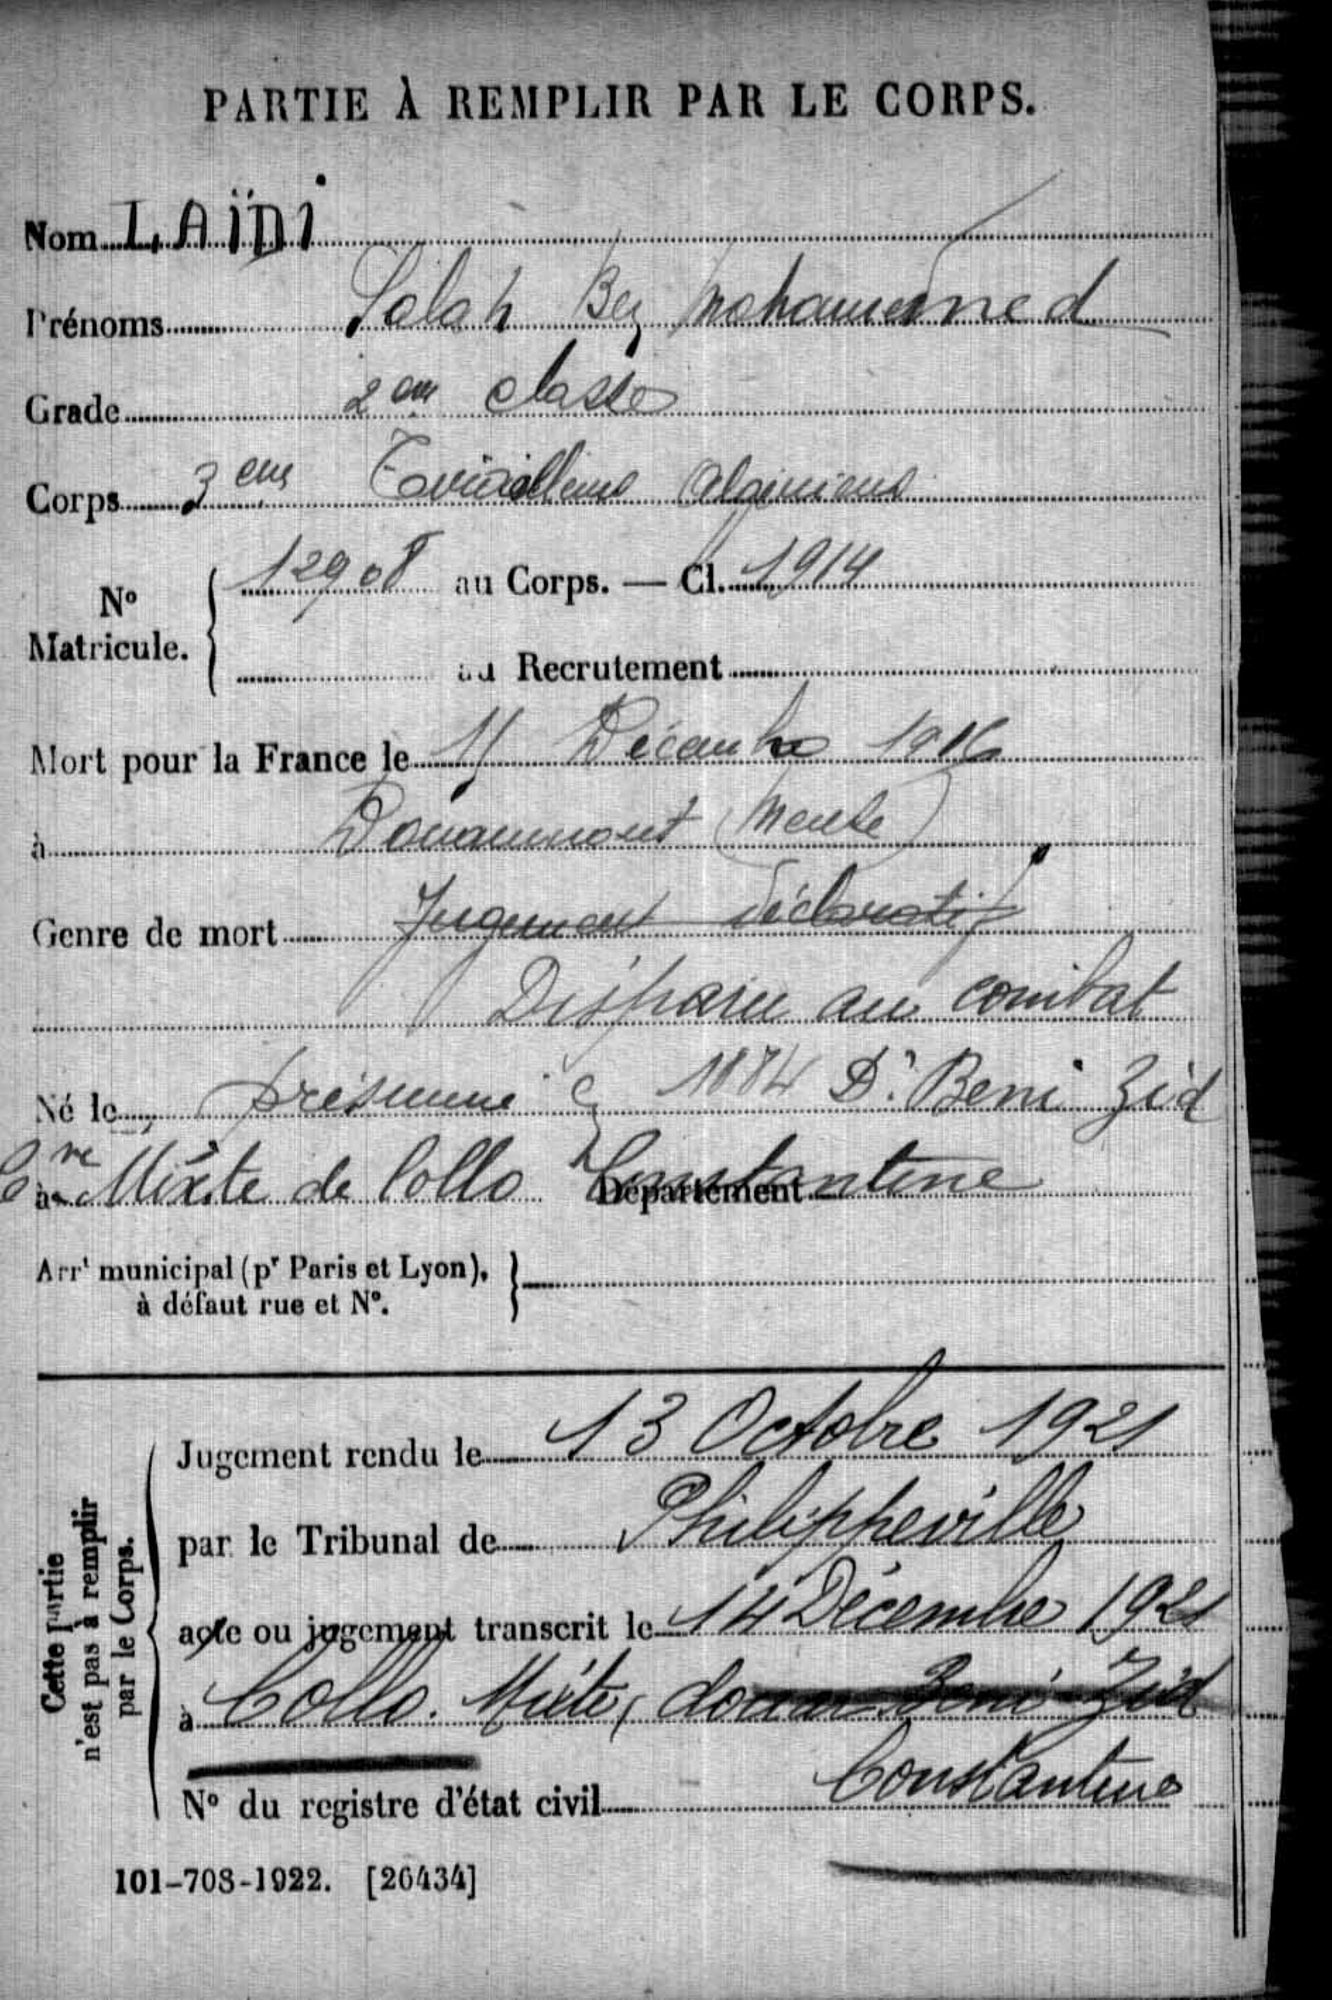 PARTIE À REMPLIR PAR LE CORPS.
Nom LAÏDI
Prénoms Salah Ben Mohammed
Grade 2em classe
Corps 3eme Tirailleurs Algériens
No Matricule. 12908 au Corps. — Cl. 1914
au Recrutement
Mort pour la France le 15 Décembre 1916
à Douaumont (Meuse)
Genre de mort Jugement déclaratif
Disparu au combat
Né le présumé en 1884 Dr Beni Zid
à Cne Mixte de Collo Département Constantine
Arrt municipal (pr Paris et Lyon), à défaut rue et No.
Cette partie n'est pas à remplir par le Corps.
Jugement rendu le 13 Octobre 1921
par le Tribunal de Philippeville
acte ou jugement transcrit le 14 Décembre 1921
à Collo. Mixte, douar Beni Zid
Constantine
No du registre d'état civil
101-708-1922. [26434]